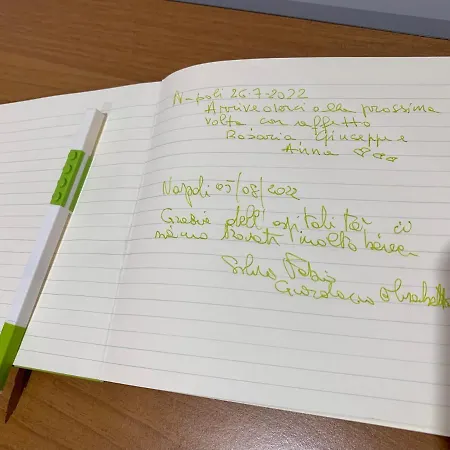 Napoli 26.7.2022
Arrivederci alla prossima
volta con affetto
Rosaria, Giuseppe
Anna
Napoli 05/08/2022
Grazie dell'ospitalità ci
siamo trovati molto bene
Silvio Fabio
Elisabetta